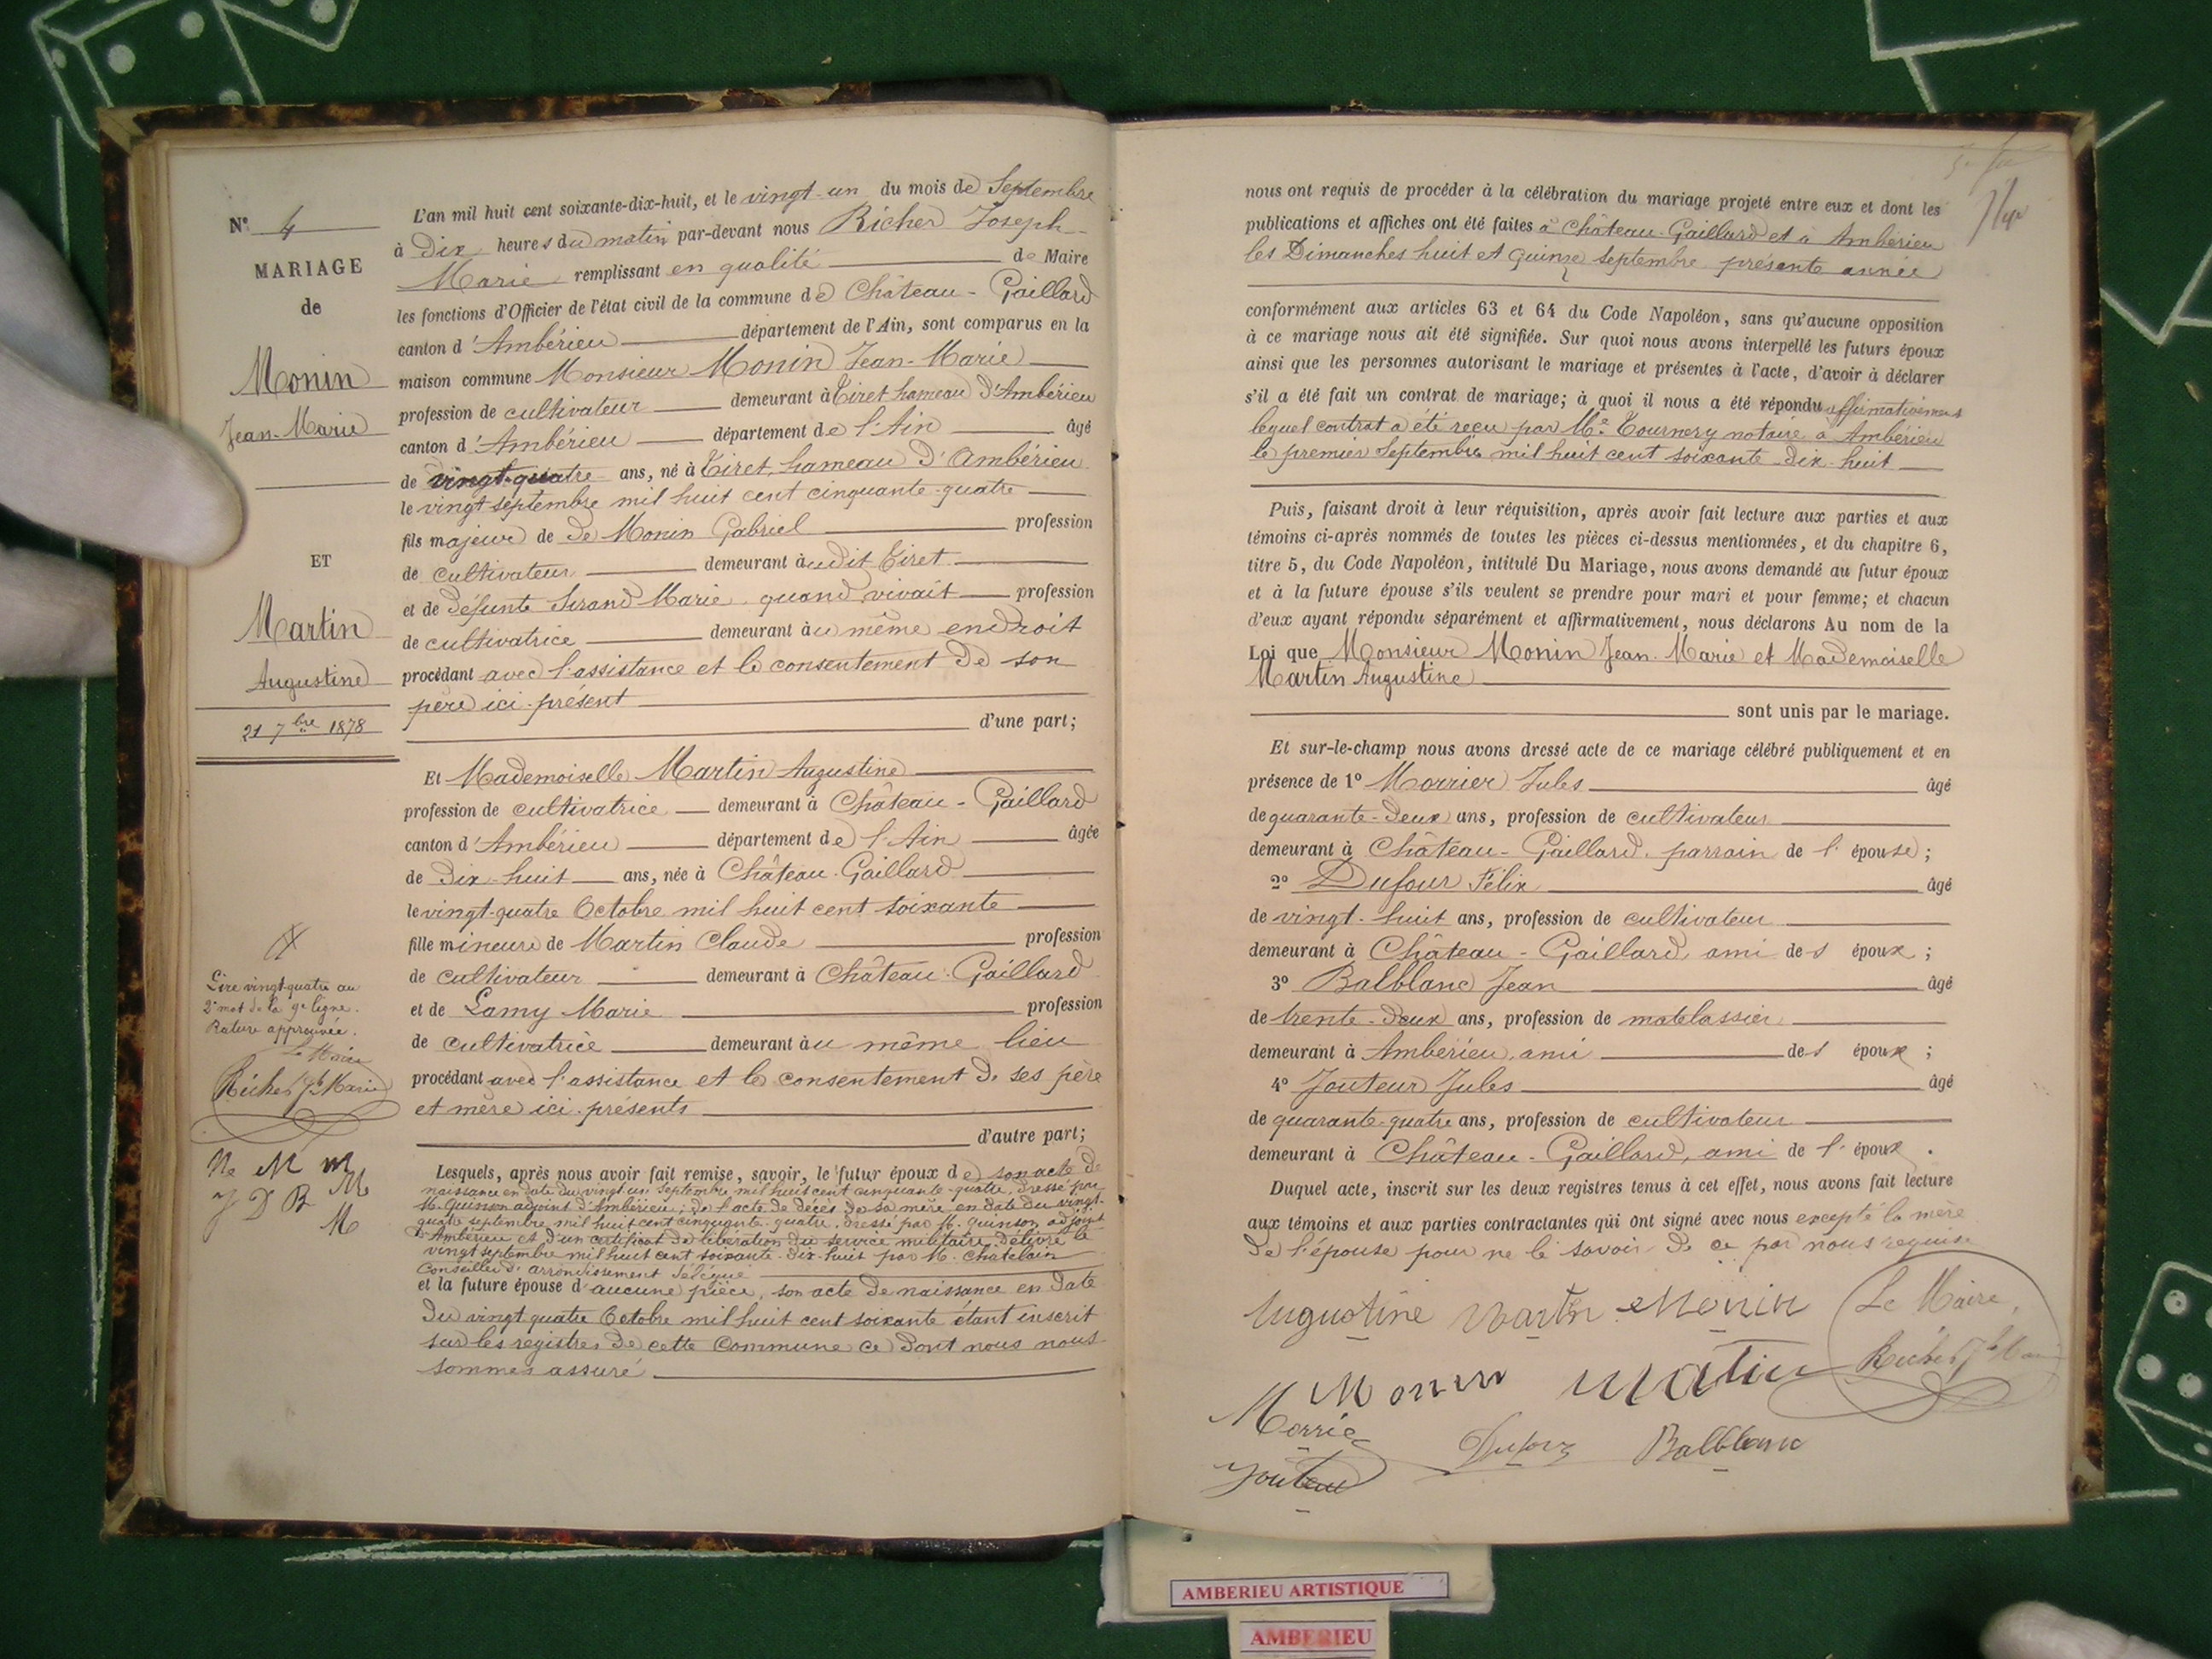 N° 4
MARIAGE
de
Monin
Jean-Marie
ET
Martin
Augustine
21 7bre 1878
Lire vingt-quatre au
2e mot de la 9e ligne.
Rature approuvée.
Le Maire
Richer Jh Marie
M M
J D B M
M
L'an mil huit cent soixante-dix-huit, et le vingt-un du mois de Septembre
à Dix heures du matin par-devant nous Richer Joseph-
Marie remplissant en qualité de Maire
les fonctions d'Officier de l'état civil de la commune de Château-Gaillard
canton d'Ambérieu département de l'Ain, sont comparus en la
maison commune Monsieur Monin Jean-Marie
profession de cultivateur demeurant à Tiret hameau d'Ambérieu
canton d'Ambérieu département de l'Ain âgé
de vingt-quatre ans, né à Tiret, hameau d'Ambérieu
le vingt septembre mil huit cent cinquante-quatre
fils majeur de de Monin Gabriel profession
de cultivateur demeurant audit Tiret
et de défunte Marie quand vivait profession
de cultivatrice demeurant au même endroit
procédant avec l'assistance et le consentement de son
père ici présent
d'une part;
Et Mademoiselle Martin Augustine
profession de cultivatrice demeurant à Château-Gaillard
canton d'Ambérieu département de l'Ain âgée
de dix-huit ans, née à Château-Gaillard
le vingt-quatre Octobre mil huit cent soixante
fille mineure de Martin Claude profession
de cultivateur demeurant à Château-Gaillard
et de Lamy Marie profession
de cultivatrice demeurant au même lieu
procédant avec l'assistance et le consentement de ses père
et mère ici présents
d'autre part;
Lesquels, après nous avoir fait remise, savoir, le futur époux de son acte de
naissance en date du vingt-un Septembre mil huit cent cinquante-quatre, dressé par
M. Quinson adjoint d'Ambérieu; de l'acte de décès de sa mère en date du vingt-
quatre septembre mil huit cent cinquante-quatre, dressé par M. Quinson adjoint
d'Ambérieu et d'un certificat de libération du service militaire délivré le
vingt septembre mil huit cent soixante-dix-huit par M. Chatelain
Conseiller d'arrondissement délégué
et la future épouse d'aucune pièce, son acte de naissance en date
du vingt quatre Octobre mil huit cent soixante étant inscrit
sur les registres de cette Commune ce dont nous nous
sommes assuré
nous ont requis de procéder à la célébration du mariage projeté entre eux et dont les
publications et affiches ont été faites à Château-Gaillard et à Ambérieu
les Dimanches huit et quinze septembre présente année
conformément aux articles 63 et 64 du Code Napoléon, sans qu'aucune opposition
à ce mariage nous ait été signifiée. Sur quoi nous avons interpellé les futurs époux
ainsi que les personnes autorisant le mariage et présentes à l'acte, d'avoir à déclarer
s'il a été fait un contrat de mariage; à quoi il nous a été répondu affirmativement
lequel contrat a été reçu par Me Tournery notaire à Ambérieu
le premier Septembre mil huit cent soixante-dix-huit
Puis, faisant droit à leur réquisition, après avoir fait lecture aux parties et aux
témoins ci-après nommés de toutes les pièces ci-dessus mentionnées, et du chapitre 6,
titre 5, du Code Napoléon, intitulé Du Mariage, nous avons demandé au futur époux
et à la future épouse s'ils veulent se prendre pour mari et pour femme; et chacun
d'eux ayant répondu séparément et affirmativement, nous déclarons Au nom de la
Loi que Monsieur Monin Jean-Marie et Mademoiselle
Martin Augustine
sont unis par le mariage.
Et sur-le-champ nous avons dressé acte de ce mariage célébré publiquement et en
présence de 1° Morrier Jules âgé
de quarante-deux ans, profession de cultivateur
demeurant à Château-Gaillard, parrain de l'épouse;
2° Dufour Félix âgé
de vingt-huit ans, profession de cultivateur
demeurant à Château-Gaillard, ami des époux;
3° Balblanc Jean âgé
de trente-deux ans, profession de matelassier
demeurant à Ambérieu, ami des époux;
4° Jouteur Jules âgé
de quarante-quatre ans, profession de cultivateur
demeurant à Château-Gaillard, ami de l'époux.
Duquel acte, inscrit sur les deux registres tenus à cet effet, nous avons fait lecture
aux témoins et aux parties contractantes qui ont signé avec nous excepté la mère
de l'épouse pour ne le savoir de ce par nous requise
Augustine Martin Monin Le Maire,
Monin Matin Richer Jh Marie
Morrier Dufour Balblanc
Jouteur
AMBERIEU ARTISTIQUE
AMBERIEU